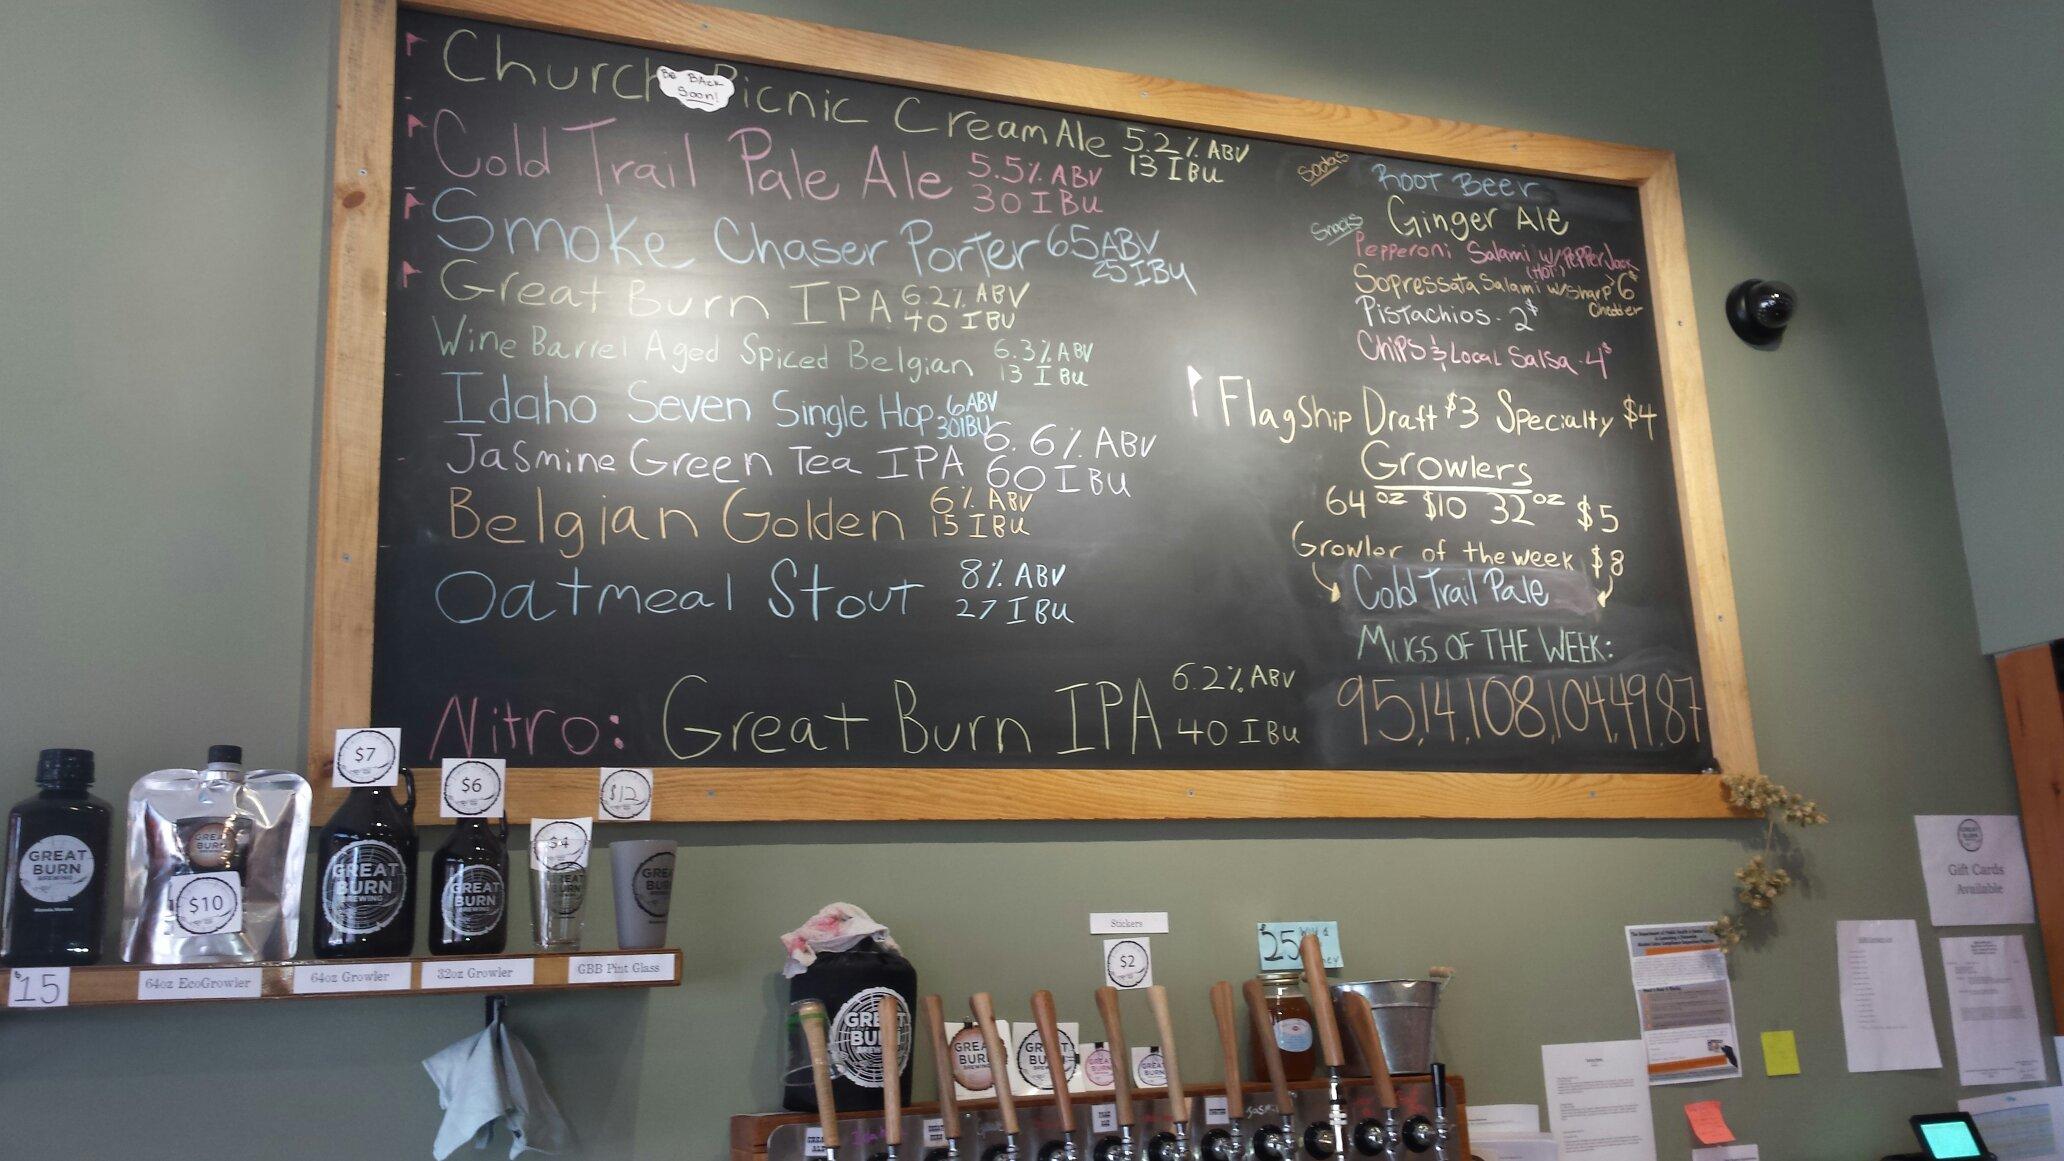 Church Picnic Cream Ale 5.2% ABV
13 IBU
Be Back
Soon!
Cold Trail Pale Ale 5.5% ABV
30 IBU
Smoke Chaser Porter 65 ABV
25 IBU
Great Burn IPA 6.2% ABV
40 IBU
Wine Barrel Aged Spiced Belgian 6.3% ABV
13 IBU
Idaho Seven Single Hop 6 ABV
30 IBU
Jasmine Green Tea IPA 6.6% ABV
60 IBU
Belgian Golden 6% ABV
15 IBU
Oatmeal Stout 8% ABV
27 IBU
Nitro: Great Burn IPA 6.2% ABV
40 IBU
Sodas
Root Beer
Ginger Ale
Snacks
Pepperoni Salami w/ Pepper Jack
(HOT)
Sopressata Salami w/ Sharp 6$
Chedder
Pistachios - 2$
Chips & Local Salsa - 4$
Flagship Draft $3 Specialty $4
Growlers
64 oz $10 32 oz $5
Growler of the week $8
Cold Trail Pale
MUGS OF THE WEEK:
95,14,108,104,49,87
$7
$6
$12
$4
$10
$15
GREAT
BURN
BREWING
GREAT
BURN
GREAT
BURN
BREWING
GREAT
BURN
BREWING
64oz EcoGrowler
64oz Growler
32oz Growler
GBB Pint Glass
Stickers
$2
$25
GREAT
BURN
BREWING
GREAT
BURN
BREWING
GREAT
BURN
BREWING
GREAT
BURN
GREAT
BURN
Gift Cards
Available